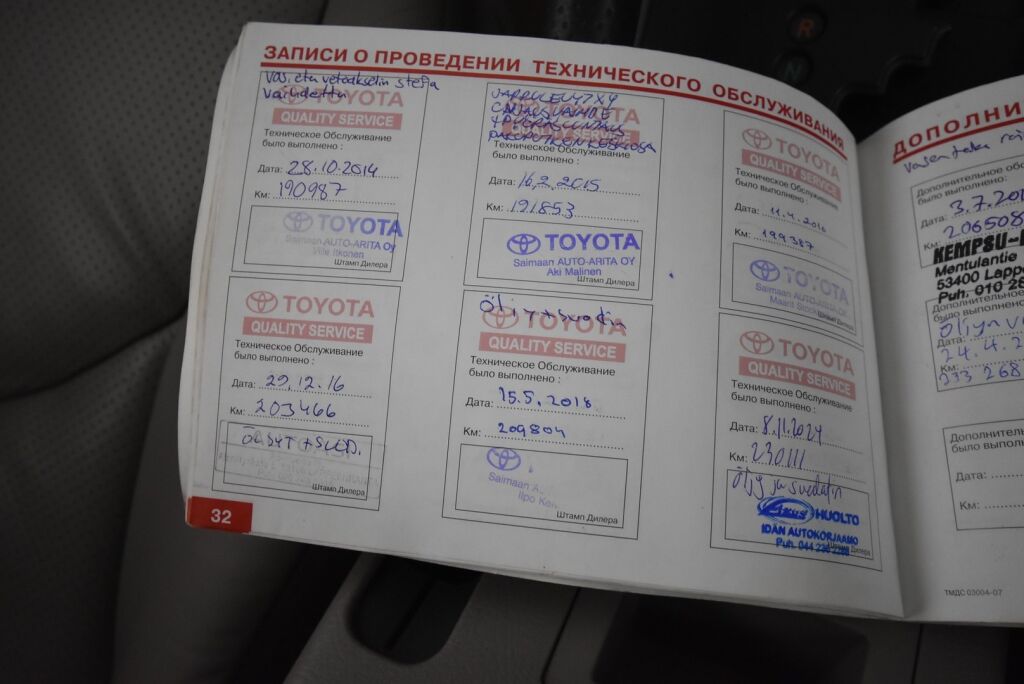 ЗАПИСИ О ПРОВЕДЕНИИ ТЕХНИЧЕСКОГО ОБСЛУЖИВАНИЯ
vasietu vetoakselin stefa
vaihdettu
TOYOTA
QUALITY SERVICE
Техническое Обслуживание
было выполнено :
Дата: 28.10.2014
Км: 190987
TOYOTA
Saimaan AUTO-ARITA Oy
Ville Itkonen
Штамп Дилера
JARRULEVYT X4
TOYOTA
QUALITY SERVICE
Техническое Обслуживание
было выполнено :
Дата: 16.2.2015
Км: 191853
TOYOTA
Saimaan AUTO-ARITA OY
Aki Malinen
Штамп Дилера
TOYOTA
QUALITY SERVICE
Техническое Обслуживание
было выполнено :
Дата: 11.4.2016
Км: 199387
TOYOTA
Saimaan AUTO-ARITA Oy
Maarit
Штамп Дилера
TOYOTA
QUALITY SERVICE
Техническое Обслуживание
было выполнено :
Дата: 29.12.16
Км: 203466
ÖLJYT + SUOD.
Штамп Дилера
Öljyt + suodin
TOYOTA
QUALITY SERVICE
Техническое Обслуживание
было выполнено :
Дата: 15.5.2018
Км: 209804
Saimaan A
Ilpo
Штамп Дилера
TOYOTA
QUALITY SERVICE
Техническое Обслуживание
было выполнено :
Дата: 8.11.2024
Км: 230111
Öljy ja suodatin
HUOLTO
IDÄN AUTOKORJAAMO
Puh. 044
Штамп Дилера
32
ДОПОЛНИ
Дополнительное об
было выполнено:
Дата: 3.7.20
Км: 206508
KEMPSU-
Mentulantie
53400 Lappe
Puh. 010 28
Дополнительное
было выполнено
Öljyn v
Дата:
24.4.2
Км:
233 268
Дополнитель
было выполн
Дата:
Км:
ТМДС 03004-07
R
N